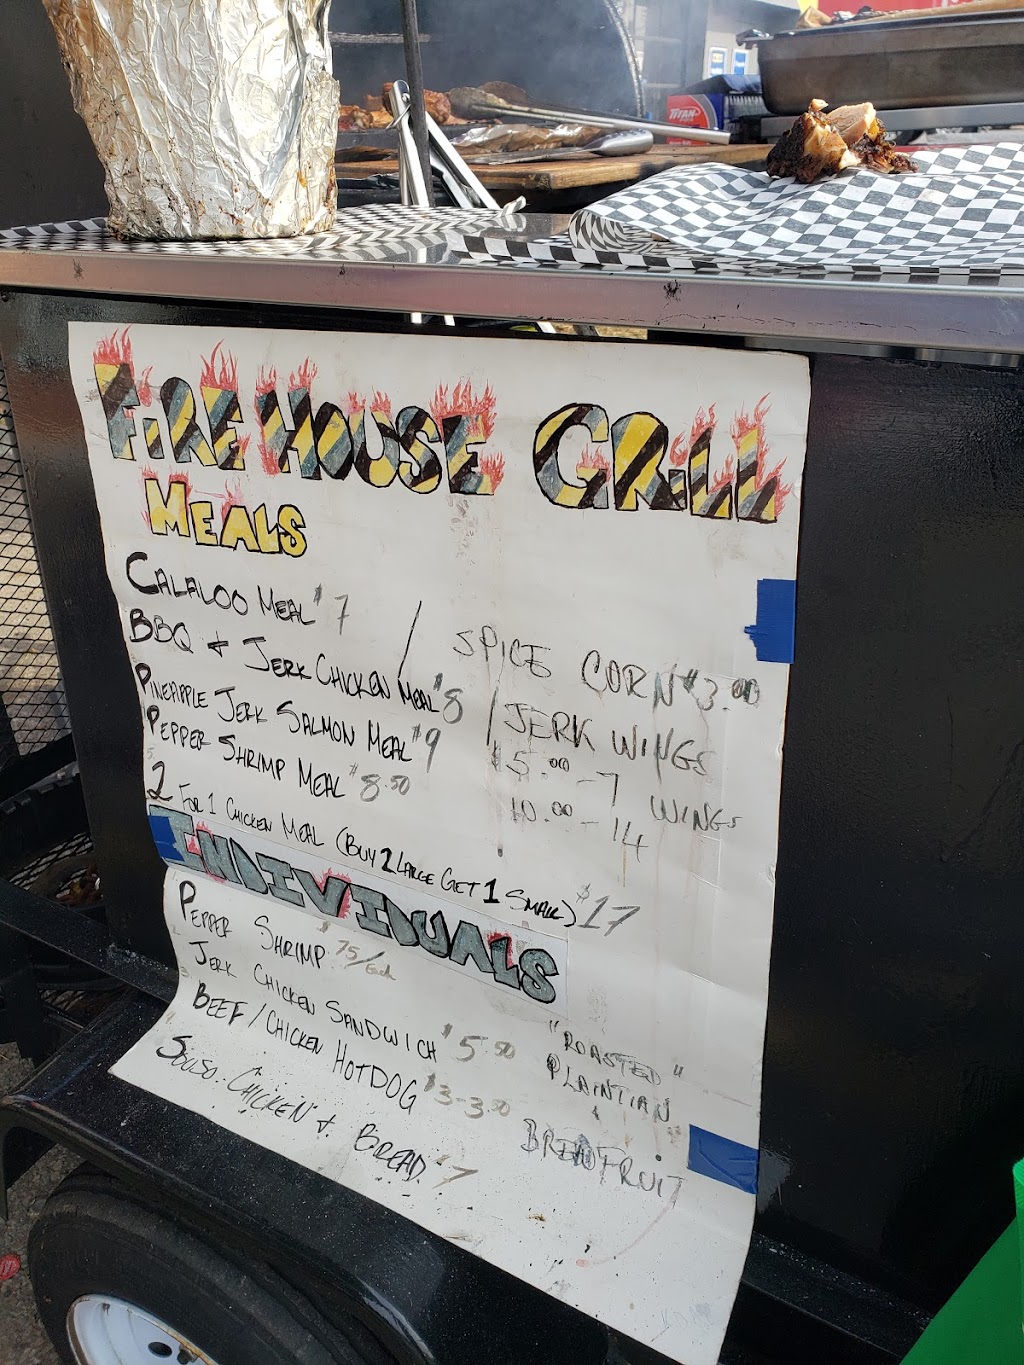 TITAN
FIRE HOUSE GRILL
MEALS
CALALOO MEAL $7
BBQ & JERK CHICKEN MEAL $8
PINEAPPLE JERK SALMON MEAL $9
PEPPER SHRIMP MEAL $8.50
2 FOR 1 CHICKEN MEAL (BUY 2 LARGE GET 1 SMALL) $17
SPICE CORN $3.00
JERK WINGS
$5.00 - 7 WINGS
10.00 - 14
INDIVIDUALS
PEPPER SHRIMP $.75/Each
JERK CHICKEN SANDWICH $5.50
BEEF / CHICKEN HOTDOG $3-3.50
CHICKEN & BREAD 7
"ROASTED"
PLAINTIAN
&
BREADFRUIT